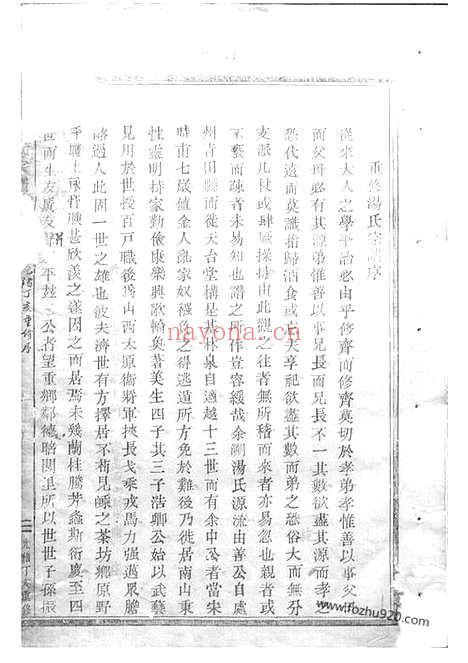 重修湯氏宗譜序
從來大人之學平治必由乎修齊而修齊莫切於孝弟孝惟善以事父
而父母必有其源弟惟善以事兄長而兄長不一其數欲盡其源而孝之
恐代遠而莫識措歸酒食或自失享祀欲盡其數而弟之恐俗大而無分
支派几杖或肆厥操掉由此觀之往者無所稽而來者亦易忽也親者或
褻而疎者未易知也譜之所作豈容緩哉余剏湯氏源流由善公自處
州青田縣而徙天台堂構是其林泉自適越十三世而有余中公者當宋
時甫七歲値金人亂家奴襁褓之得逃遁所方免於難後乃徙居南山東
性靈明持家勤儉康樂興歌輪奐著美生四子其三子浩卿公始以武藝
見用於世授百戸職後爲山西太原衞將軍挾長戈乘戎馬力强勇眾膽
略過人此固一世之雄也彼夫濟世有方擇居不茍見嵊之茶坊鄉原野
平曠土脉膏腴甚欣溪之遂因之而居焉未幾蘭桂騰芳螽斯衍慶至四
世而生友廣友
平兹二公者望重鄉鄰德聯閭里所以世世子孫振
nayona.cn
www.fozhu920.com